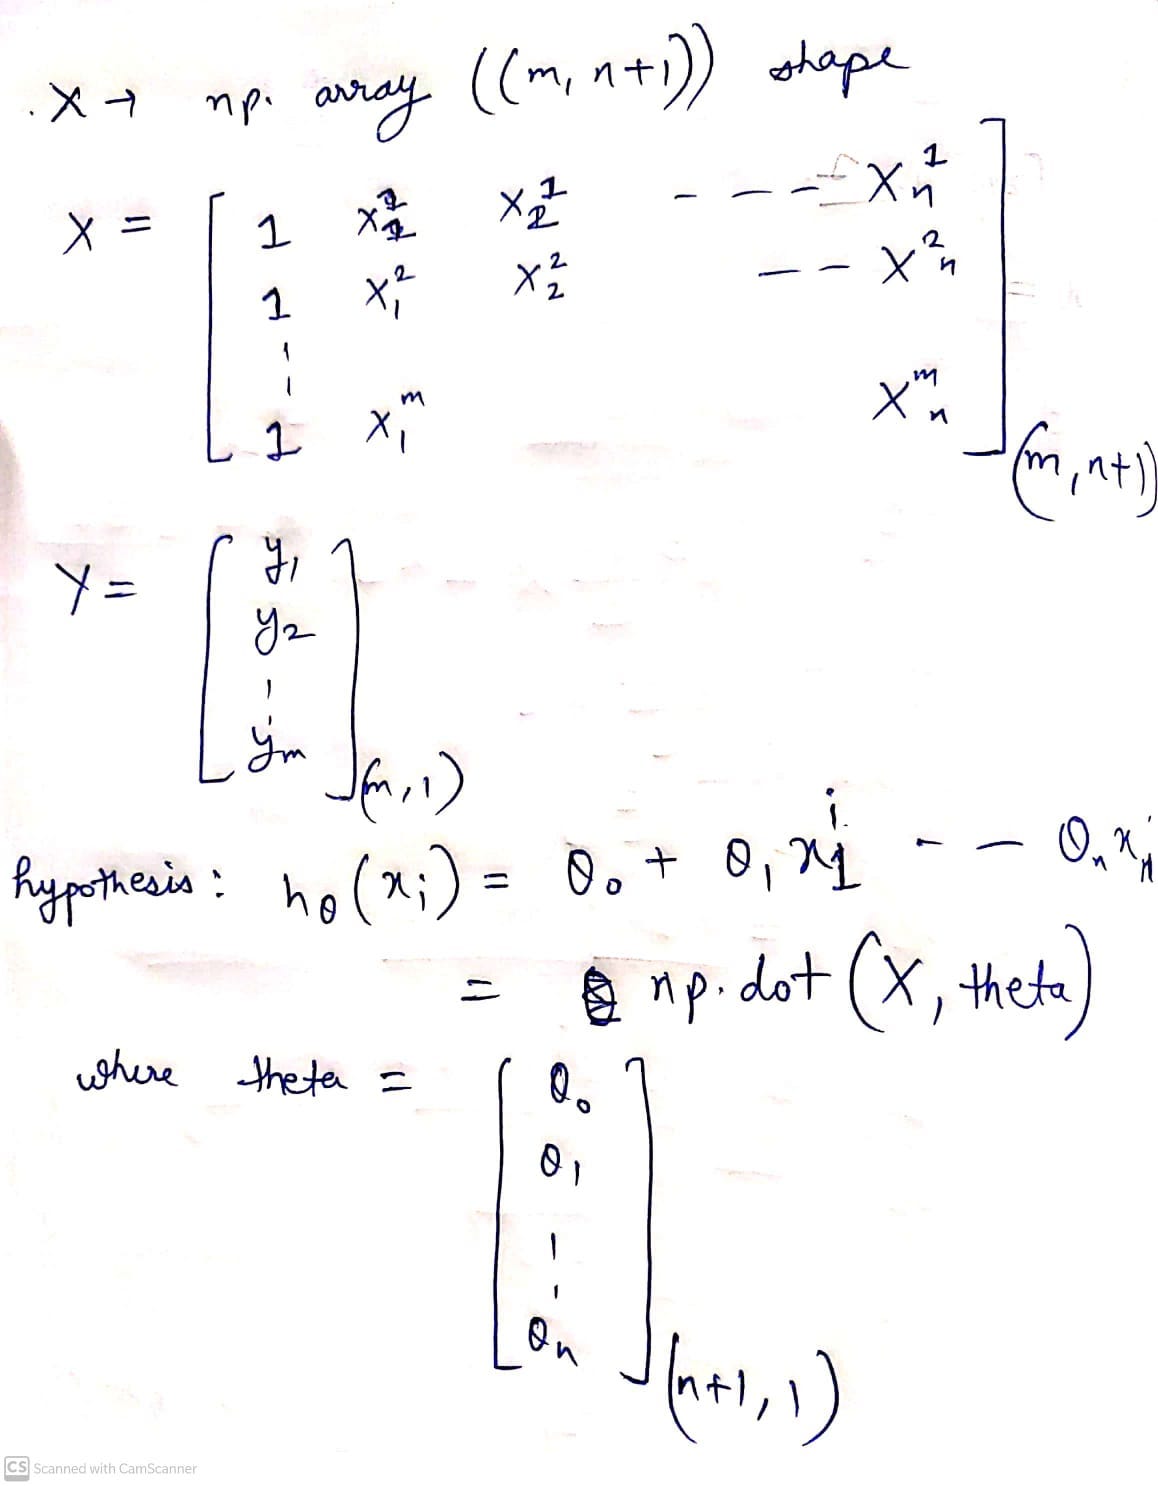 .X → np. array ((m, n+1)) shape
X = [ 1 x₁¹ x₂¹ - - - xₙ¹
1 x₁² x₂² - - x²ₙ
1 x₁ᵐ xᵐₙ ] (m, n+1)
Y = [ y₁
y₂
yₘ ] (m, 1)
hypothesis : hθ(xᵢ) = θ₀ + θ₁ x₁ⁱ - - θₙ xₙⁱ
= np.dot (X, theta)
where theta = [ θ₀
θ₁
θₙ ] (n+1, 1)
CS Scanned with CamScanner